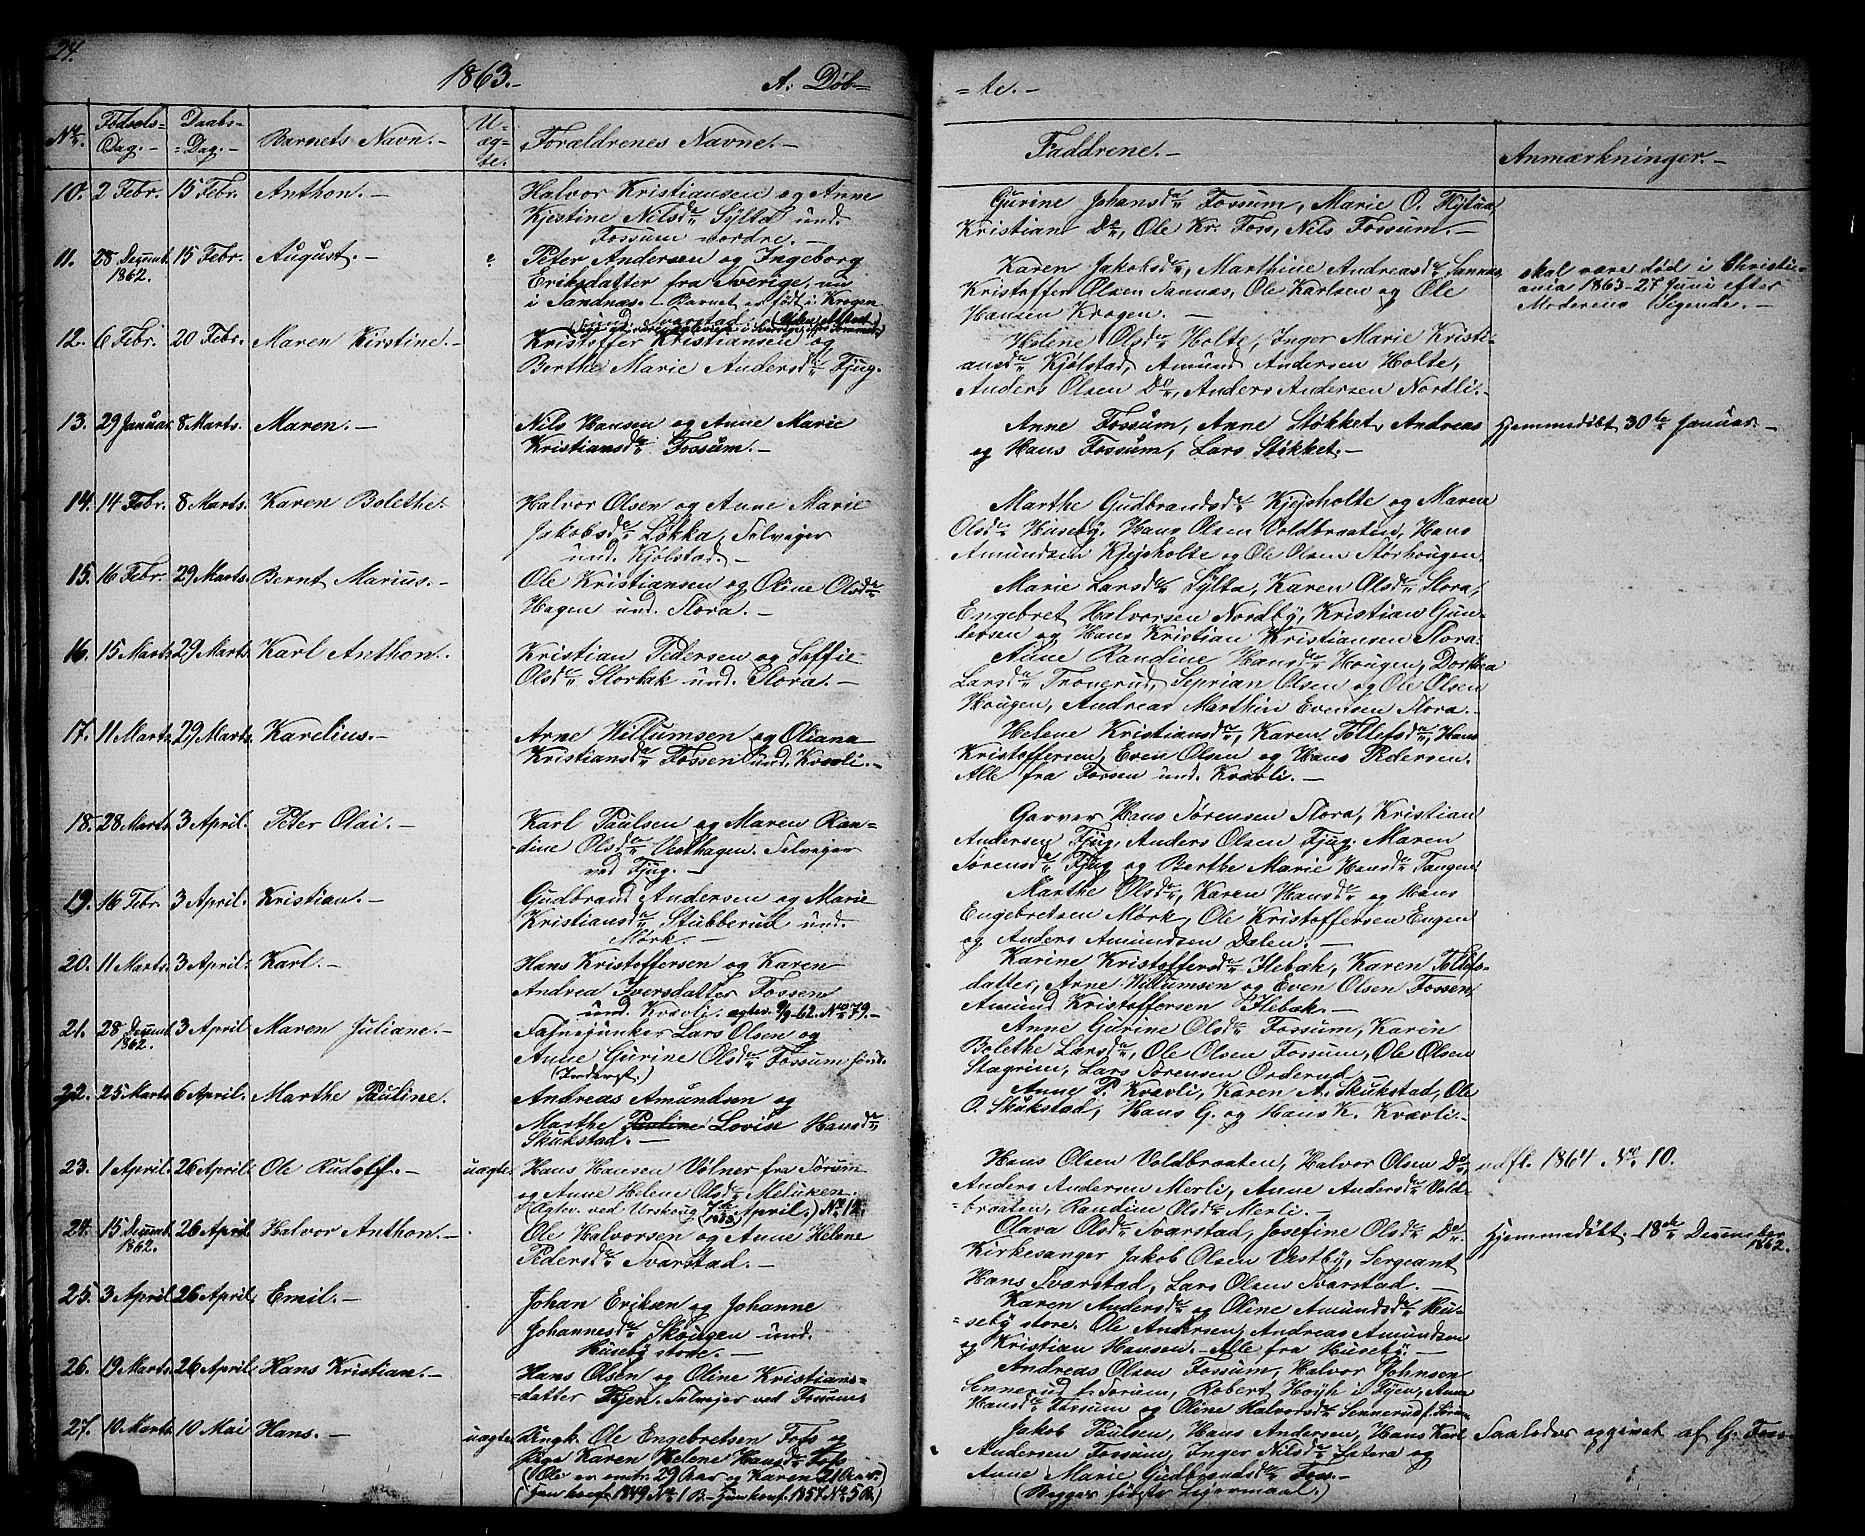 24.
1863.-
A. Døb=
No.
Fødsels-
Dag.-
Daabs-
=Dag.-
Barnets Navn.-
U-
æg-
te.
Forældrenes Navne.-
10. 2 Febr. 15 Febr. Anthon.-
Halvor Kristiansen og Anne
Kjestine Nilsdr Sylta und.
Fossum nordre.-
11. 28 Decmbr. 15 Febr. August.-
1862.
Peter Andersen og Ingeborg
Eriksdatter fra Sverige, nu
i Sandnæs. Barnet er født i Krogen
und. Svarstad.
12. 6 Febr. 20 Febr. Maren Kirstine.-
Kristoffer Kristiansen og
Berthe Marie Andersdr Fjug.
13. 29 Januar 8 Marts. Maren.-
Nils Hansen og Anne Marie
Kristiansdr Fossum.-
14. 14 Febr. 8 Marts. Karen Bolethe.
Halvor Olsen og Anne Marie
Jakobsdr Løkka, Selveier
und. Kjølstad.-
15. 16 Febr. 29 Marts. Bernt Marius.-
Ole Kristiansen og Oline Olsdr
Hagen und. Flora.-
16. 15 Marts 29 Marts. Karl Anthon.
Kristian Pedersen og Soffie
Olsdr Storbak und. Flora.-
17. 11 Marts 29 Marts. Karelius.-
Arne Willumsen og Oliana
Kristiansdr Fossen und. Kvævli.-
18. 28 Marts 3 April. Peter Olai.-
Karl Paulsen og Maren Ran=
dine Olsdr Vesthagen. Selveier
ved Fjug.-
19. 16 Febr. 3 April. Kristian.-
Gudbrand Andersen og Marie
Kristiansdr Stubberud und.
Mørk.-
20. 11 Marts. 3 April. Karl.-
Hans Kristoffersen og Karen
Andrea Iversdatter Fossen
und. Kvævli. ægtev. 9/9-62. No. 79.-
21. 28 Decmbr. 3 April Maren Juliane.-
1862.
Fanejunker Lars Olsen og
Anne Gurine Olsdr Fossum
22. 25 Marts 6 April. Marthe Pauline.
Andreas Amundsen og
Marthe Pauline Lovise Hansdr
Skukstad.-
23. 1 April. 26 April. Ole Rudolf.- uægte.
Hans Hansen Völner fra Sørum
og Anne Helene Olsdr
24. 15 Decmbr. 26 April. Halvor Anthon.-
1862.
Ole Halvorsen og Anne Helene
Pedersdr Svarstad.-
25. 3 April 26 April. Emil.-
Johan Eriksen og Johanne
Johannesdr Skougen und.
Huseby store.-
26. 19 Marts. 26 April Hans Kristian.-
Hans Olsen og Oline Kristians-
-datter Selveier ved Fossum.
27. 10 Marts 10 Mai Hans.- uægte.
Ungk. Ole Engebretsen Foss og
Pige Karen Helene Hansdr Foss
(Ole er omtr. 29 Aar og Karen 21 Aar.
(Han konf. 1849 No 1 B.- Hun konf. 1857 No 5 B.)
= te.-
Faddrene.-
Anmærkninger.-
Gurine Johansdr Fossum, Marie O.
Kristian Do, Ole Kr. Foss, Nils Fossum.-
Karen Jakobsdr, Marthine Andreasdr Sannæs,
Kristoffer Olsen Sannæs, Ole Karlsen og Ole
Hansen Krogen.-
skal være død i Christi=
ania 1863-27 Juni efter
Moderens Sigende.-
Helene Olsdr Holte, Inger Marie Kristi-
ansdr Kjølstad, Amund Andersen Holte,
Anders Olsen Do, Anders Andersen Nortli.-
Anne Fossum, Anne Støkket, Andreas
og Hans Fossum, Lars Støkket.-
Hjemmedøbt 30te Januar.-
Marthe Gudbrandsdr Kjejsholte og Maren
Olsdr Huseby, Hans Olsen Voldbraaten, Hans
Amundsen Kjejsholte og Ole Olsen Storhougen.
Marie Larsdr Sylta, Karen Olsdr Flora,
Engebret Halvorsen Nordby, Kristian Gun-
dersen og Hans Kristian Kristiansen Flora.
Anne Randine Hansdr Hougen, Dorthea
Larsdr Tronerud, Seprian Olsen og Ole Olsen
Hougen, Andreas Marthin Evensen Flora.-
Helene Kristiansdr, Karen Tollefsdr, Hans
Kristoffersen, Even Olsen og Hans Pedersen.
Alle fra Fossen und. Kvævli.-
Garver Hans Sørensen Flora, Kristian
Andersen Fjug, Anders Olsen Fjug. Maren
Sørensdr Fjug og Berthe Marie Hansdr Tangen.
Marthe Olsdr, Karen Hansdr og Hans
Engebretsen Mørk, Ole Kristoffersen Engen
og Anders Amundsen Dalen.-
Karine Kristoffersdr Flebak, Karen Tollefs-
datter, Arne Willumsen og Even Olsen Fossen,
Amund Kristoffersen Flebak.-
Anne Gurine Olsdr Fossum, Karen
Bolethe Larsdr, Ole Olsen Fossum, Ole Olsen
Stagrim, Lars Sørensen Orderud.
Anne P. Kvævli, Karen A. Skukstad, Ole
O. Skukstad, Hans G. og Hans K. Kvævli.-
Hans Olsen Voldbraaten, Halvor Olsen Do,
Anders Andersen Merli, Anne Andersdr Vold-
-braaten, Randine Olsdr Merli.-
udfl. 1864. No. 10.
Olava Olsdr Svarstad, Josefine Olsdr Do.
Kirkesanger Jakob Olsen Vestby, Sergeant
Hans Svarstad, Lars Olsen Svarstad.-
Hjemmedøbt. 18de December
1862.
Karen Andersdr og Oline Amundsdr Hu-
-seby store. Ole Andersen, Andreas Amundsen
og Kristian Hansen.- Alle fra Huseby.-
Andreas Olsen Fossum, Halvor Johnsen
Sennerud f. Sørum, Robert Høyh i Fyen, Anne
Hansdr Fossum og Oline Halvorsdr Sennerud f. Sørum.
Jakob Paulsen, Hans Andersen, Hans Karl
Andersen Fossum, Inger Nilsdr Setera og
Anne Marie Gudbrandsdr Foss.-
(Begges første Leiermaal.)
Saaledes opgivet af G. Foss.